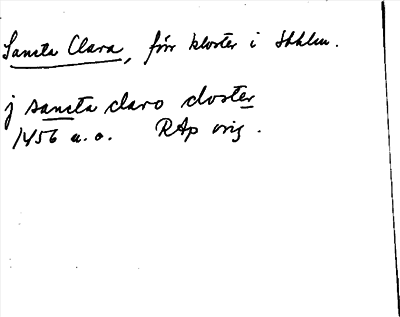 Sancta Clara, för kloster i Sthlm.
j sancta claro closter
1456 u.o. RAp orig.